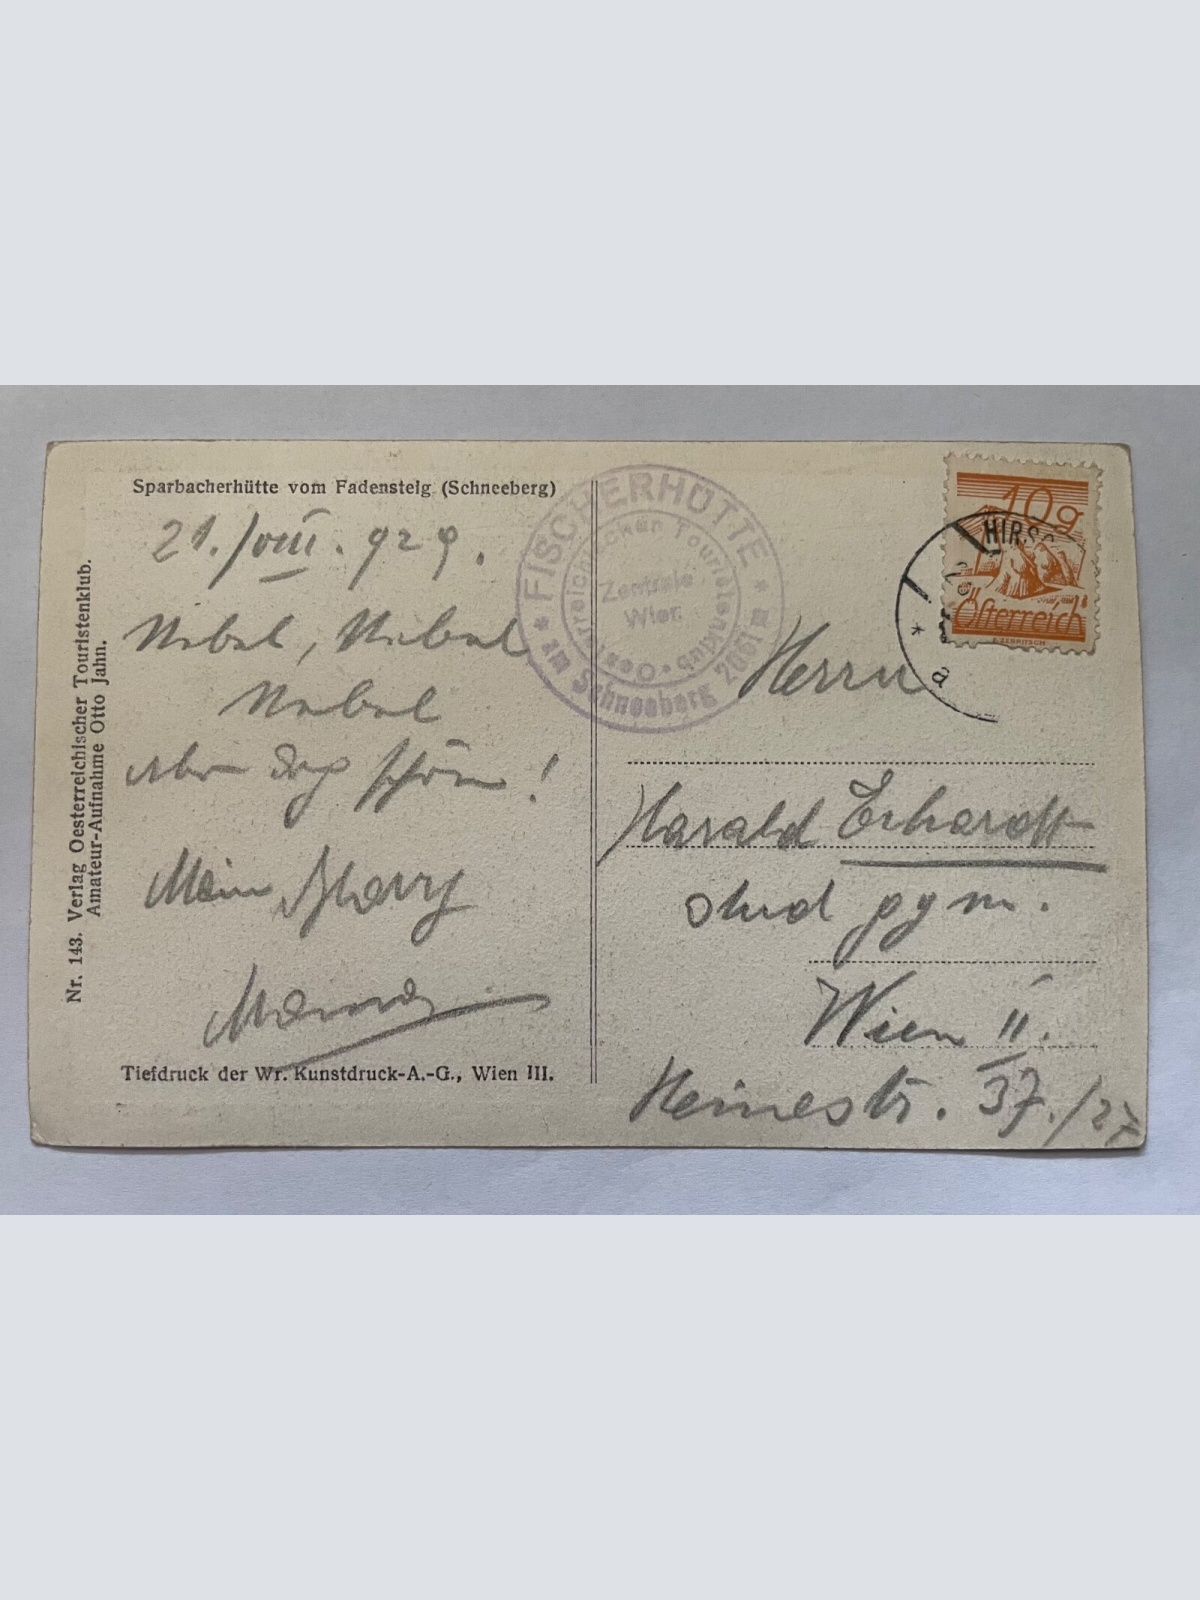 Sparbacherhütte vom Fadensteig (Schneeberg)
21./VIII. 929.
Nebel, Nebel
Nebel
aber doch schön!
Mein
Tiefdruck der Wr. Kunstdruck-A.-G., Wien III.
Nr. 143. Verlag Oesterreichischer Touristenklub.
Amateur-Aufnahme Otto Jahn.
* FISCHERHÜTTE *
am Schneeberg 2061 m
Oesterreichischer Touristenklub
Zentrale
Wien
10g
Österreich
HIRSC
* a
Herrn
Harald Erhardt
stud gym.
Wien II.
Heinestr. 37./27